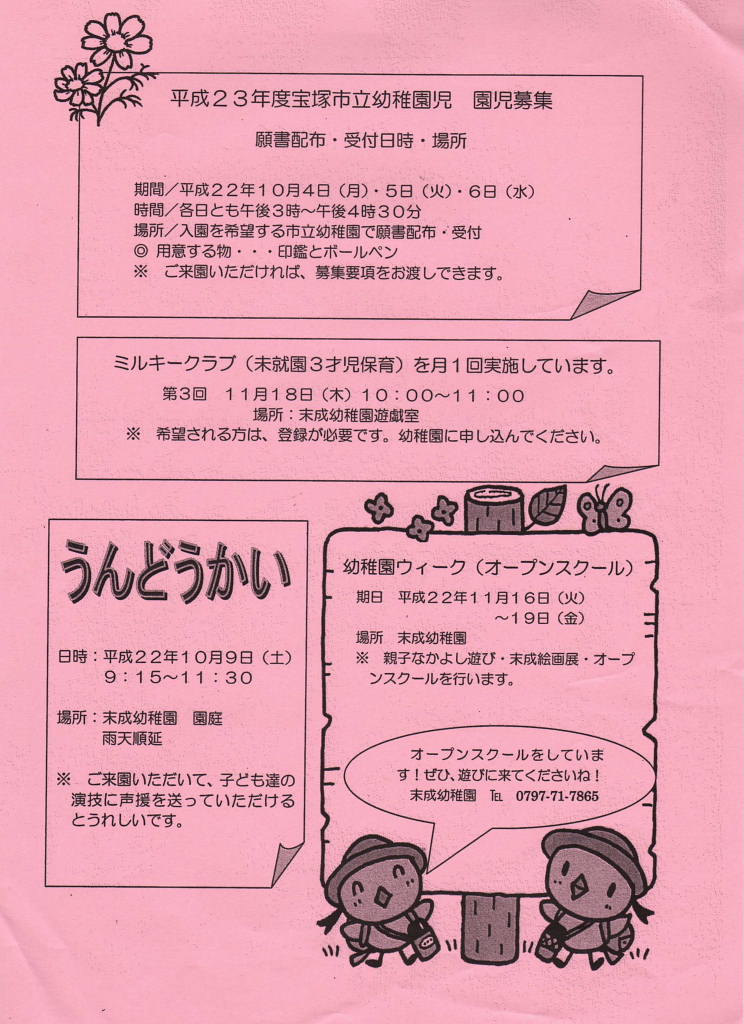 平成23年度宝塚市立幼稚園児　園児募集
願書配布・受付日時・場所
期間／平成22年10月4日（月）・5日（火）・6日（水）
時間／各日とも午後3時～午後4時30分
場所／入園を希望する市立幼稚園で願書配布・受付
◎ 用意する物・・・印鑑とボールペン
※　ご来園いただければ、募集要項をお渡しできます。
ミルキークラブ（未就園3才児保育）を月1回実施しています。
第3回　11月18日（木）10：00～11：00
場所：末成幼稚園遊戯室
※　希望される方は、登録が必要です。幼稚園に申し込んでください。
うんどうかい
日時：平成22年10月9日（土）
9：15～11：30
場所：末成幼稚園　園庭
雨天順延
※　ご来園いただいて、子ども達の
演技に声援を送っていただける
とうれしいです。
幼稚園ウィーク（オープンスクール）
期日　平成22年11月16日（火）
～19日（金）
場所　末成幼稚園
※　親子なかよし遊び・末成絵画展・オープ
ンスクールを行います。
オープンスクールをしていま
す！ぜひ、遊びに来てくださいね！
末成幼稚園　℡　0797-71-7865